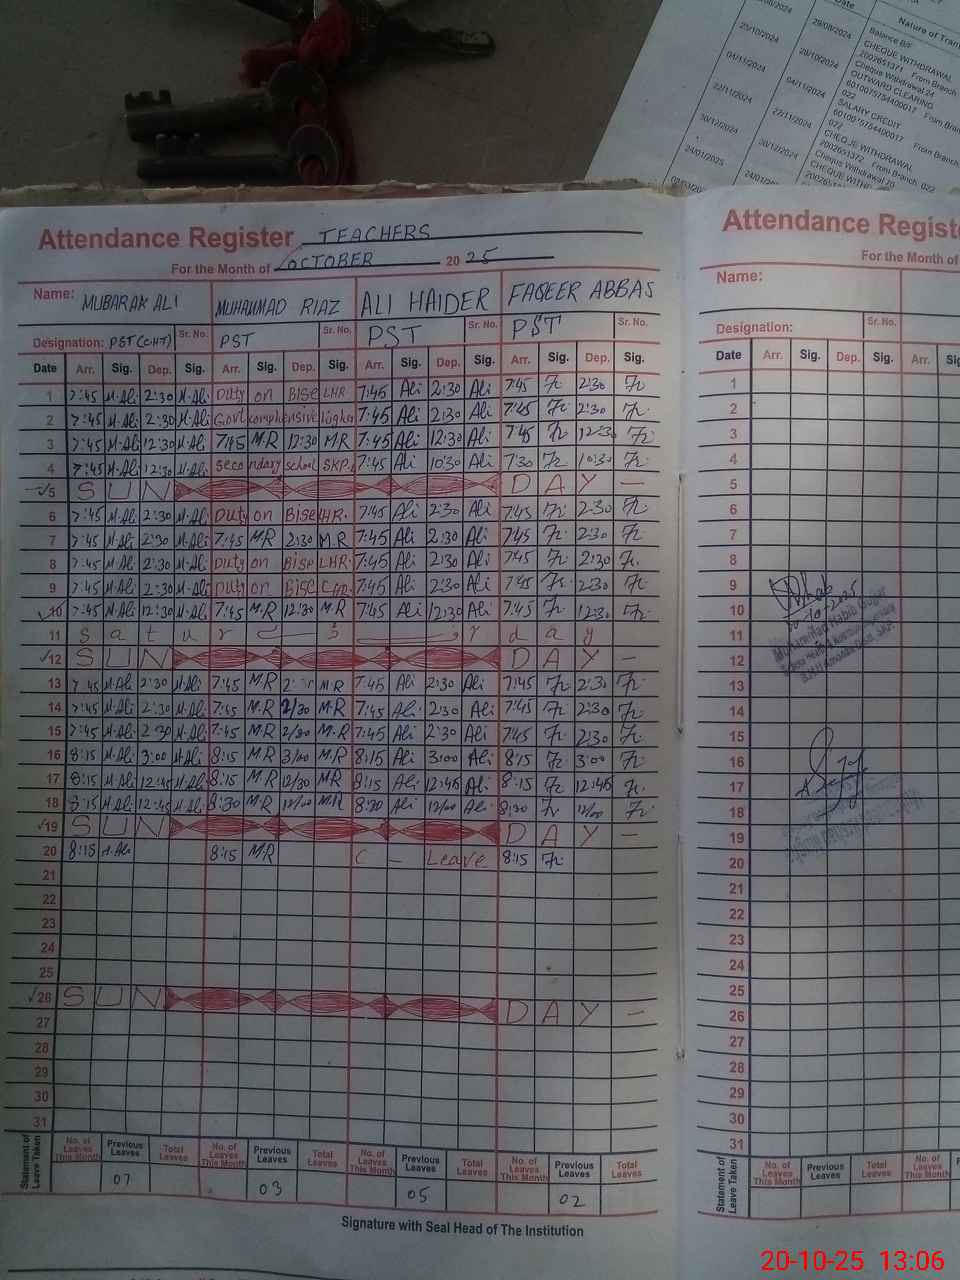 Date Nature of Tran
29/08/2024 Balance B/F
25/10/2024 28/10/2024 CHEQUE WITHDRAWAL
2002651371 From Branch
Cheque Withdrawal 24
04/11/2024 04/11/2024 OUTWARD CLEARING
6010075764400017 From Branch
022
22/11/2024 22/11/2024 SALARY CREDIT
6010075764400017 From Branch
022
30/12/2024 20/12/2024 CHEQUE WITHDRAWAL
2002651372 From Branch 022
Cheque Withdrawal 20
24/01/2025 24/01/
Attendance Register TEACHERS
For the Month of OCTOBER 20 25
Name: MUBARAK ALI MUHAMMAD RIAZ ALI HAIDER FAQEER ABBAS
Designation: PST(CHT) Sr. No. PST Sr. No. PST Sr. No. PST Sr. No.
Date Arr. Sig. Dep. Sig. Arr. Sig. Dep. Sig. Arr. Sig. Dep. Sig. Arr. Sig. Dep. Sig.
1 7:45 M.Ali 2:30 M.Ali Duty on Bise LHR 7:45 Ali 2:30 Ali 7:45 2:30
2 7:45 M.Ali 2:30 M.Ali Govt 7:45 Ali 2:30 Ali 7:45 2:30
3 7:45 M.Ali 12:30 M.Ali 7:45 M.R 12:30 M.R 7:45 Ali 12:30 Ali 7:45 12:30
4 7:45 M.Ali 12:30 M.Ali secondary school SKP. 7:45 Ali 10:30 Ali 7:30 10:30
5 SUN DAY –
6 7:45 M.Ali 2:30 M.Ali Duty on Bise LHR. 7:45 Ali 2:30 Ali 7:45 2:30
7 7:45 M.Ali 2:30 M.Ali 7:45 MR 2:30 M.R 7:45 Ali 2:30 Ali 7:45 2:30
8 7:45 M.Ali 2:30 M.Ali Duty on Bise LHR. 7:45 Ali 2:30 Ali 7:45 2:30
9 7:45 M.Ali 2:30 M.Ali Duty on Bise 7:45 Ali 2:30 Ali 7:45 2:30
10 7:45 M.Ali 12:30 M.Ali 7:45 M.R 12:30 M.R 7:45 Ali 12:30 Ali 7:45 12:30
11 Satur day
12 SUN DAY –
13 7:45 M.Ali 2:30 M.Ali 7:45 M.R M.R 7:45 Ali 2:30 Ali 7:45 2:30
14 7:45 M.Ali 2:30 M.Ali 7:45 M.R 2/30 M.R 7:45 Ali 2:30 Ali 7:45 2:30
15 7:45 M.Ali 2:30 M.Ali 7:45 M.R 2/30 M.R 7:45 Ali 2:30 Ali 7:45 2:30
16 8:15 M.Ali 3:00 M.Ali 8:15 M.R 3/00 M.R 8:15 Ali 3:00 Ali 8:15 3:00
17 8:15 M.Ali 12:45 M.Ali 8:15 MR 12/30 MR 8:15 Ali 12:45 Ali 8:15 12:45
18 8:15 M.Ali 12:45 M.Ali 8:30 M.R 12/00 M.R 8:30 Ali 12/00 Ali 8:30 12/00
19 SUN DAY –
20 8:15 M.Ali 8:15 M.R C – Leave 8:15
21
22
23
24
25
26 SUN DAY –
27
28
29
30
31
Statement of Leave Taken
No. of Leaves This Month Previous Leaves Total Leaves No. of Leaves This Month Previous Leaves Total Leaves No. of Leaves This Month Previous Leaves Total Leaves No. of Leaves This Month Previous Leaves Total Leaves
07 03 05 02
Signature with Seal Head of The Institution
Attendance Registe
For the Month of
Name:
Designation: Sr. No.
Date Arr. Sig. Dep. Sig. Arr. Sig.
1
2
3
4
5
6
7
8
9
10
11
12
13
14
15
16
17
18
19
20
21
22
23
24
25
26
27
28
29
30
31
Muhammad Habib
Statement of Leave Taken
No. of Leaves This Month Previous Leaves Total Leaves No. of Leaves This Month
20-10-25 13:06